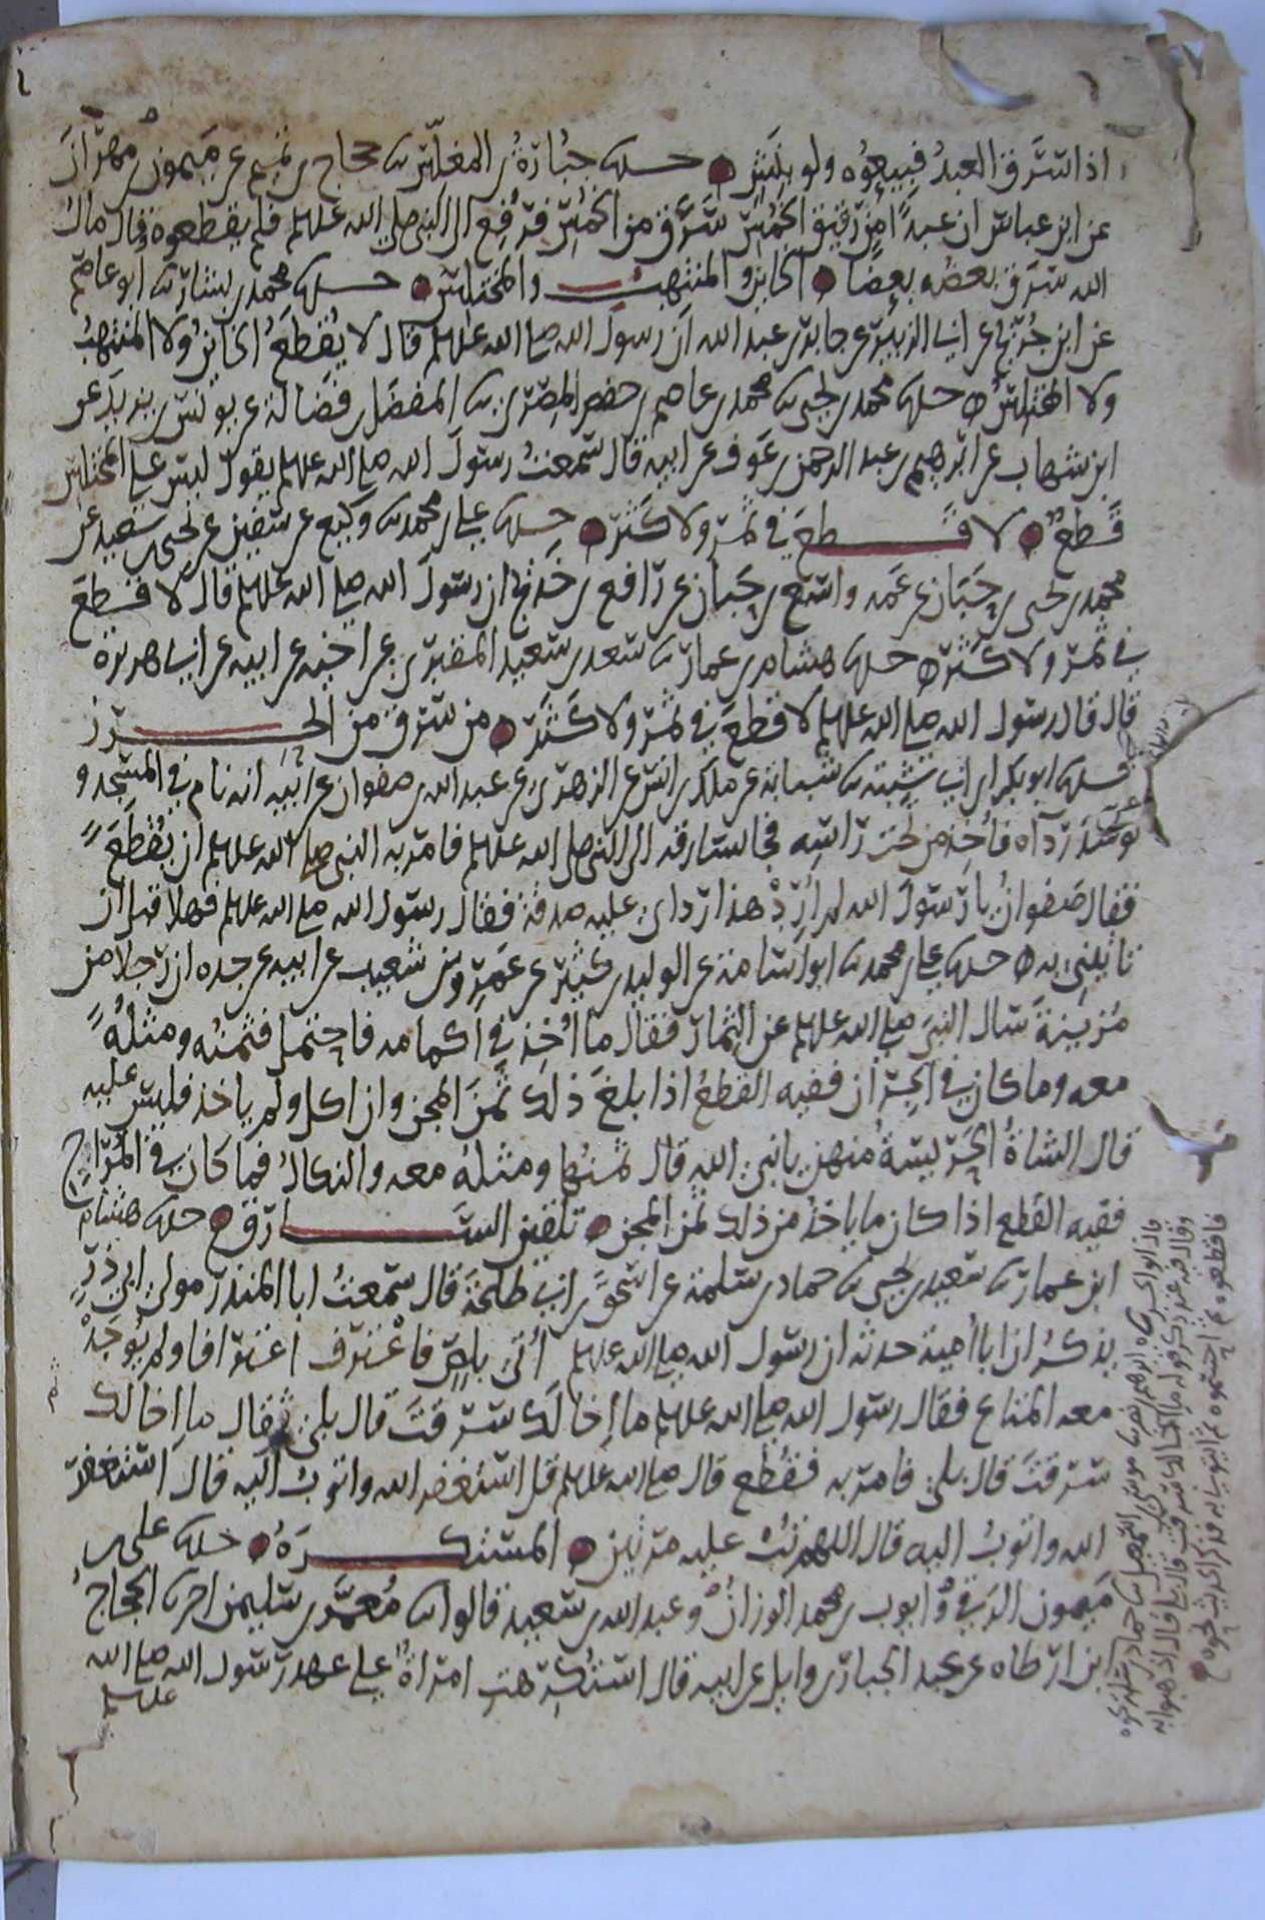 اذا سرق العبد فبيعوه ولو بنش حدثنا جبارة بن المغلس ثنا حجاج بن تميم عن ميمون بن مهران
عن ابن عباس ان عبدا من رقيق الخمس سرق من الخمس فرفع الى النبي صلى الله عليه وسلم فلم يقطعه وقال مال
الله سرق بعضه بعضا الخاين والمنتهب والمختلس حدثنا محمد بن بشار ثنا ابو عاصم
عن ابن جريج عن ابي الزبير عن جابر بن عبد الله ان رسول الله صلى الله عليه وسلم قال لا يقطع الخاين ولا المنتهب
ولا المختلس حدثنا محمد بن يحيى ثنا محمد بن عاصم بن جعفر المصري ثنا المفضل بن فضالة عن يونس بن يزيد عن
ابن شهاب عن ابرهيم بن عبد الرحمن بن عوف عن ابيه قال سمعت رسول الله صلى الله عليه وسلم يقول ليس على المختلس
قطع لا قطع في ثمر ولا كثر حدثنا علي بن محمد ثنا وكيع عن سفين عن يحيى بن سعيد عن
محمد بن يحيى بن حبان عن عمه واسع بن حبان عن رافع بن خديج ان رسول الله صلى الله عليه وسلم قال لا قطع
في ثمر ولا كثر حدثنا هشام بن عمار ثنا سعد بن سعيد المقبري عن اخيه عن ابيه عن ابي هريرة
قال قال رسول الله صلى الله عليه وسلم لا قطع في ثمر ولا كثر من سرق من الحرز
حدثنا ابو بكر بن ابي شيبة ثنا شبابة عن ملك بن انس عن الزهري عن عبد الله بن صفوان عن ابيه انه نام في المسجد و
توسد رداه فاخذ من تحت راسه فجا بسارقه الى النبي صلى الله عليه وسلم فامر به النبي صلى الله عليه وسلم ان يقطع
فقال صفوان يا رسول الله لم ارد هذا رداي عليه صدقة فقال رسول الله صلى الله عليه وسلم فهلا قبل ان
تاتيني به حدثنا علي بن محمد ثنا ابو اسامة عن الوليد بن كثير عن عمرو بن شعيب عن ابيه عن جده ان رجلا من
مزينة سال النبي صلى الله عليه وسلم عن الثمار فقال ما اخذ في اكمامه فاحتمل فثمنه ومثله
معه وما كان في الجران ففيه القطع اذا بلغ ذلك ثمن المجن وان اكل ولم ياخذ فليس عليه
قال الشاة الحريسة منهن يا نبي الله قال ثمنها ومثله معه والنكال فما كان في المراح
ففيه القطع اذا كان ما ياخذ من ذلك ثمن المجن تلقين السارق حدثنا هشام
ابن عمار ثنا سعيد بن يحيى ثنا حماد بن سلمة عن اسحق بن ابي طلحة قال سمعت ابا المنذر مولى ابي ذر
يذكر ان ابا امية حدثه ان رسول الله صلى الله عليه وسلم اتي بلص فاعترف اعترافا ولم يوجد
معه المتاع فقال رسول الله صلى الله عليه وسلم ما اخالك سرقت قال بلى ثم قال ما اخالك
سرقت قال بلى فامر به فقطع قال صلى الله عليه وسلم قل استغفر الله واتوب اليه قال استغفر
الله واتوب اليه قال اللهم تب عليه مرتين المستكره حدثنا علي بن
ميمون الرقي وايوب بن محمد الوزان وعبد الله بن سعيد قالوا ثنا معمر بن سليمن انا الحجاج
ابن ارطاه عن عبد الجبار بن وايل عن ابيه قال استكرهت امراة على عهد رسول الله صلى الله
عليه وسلم